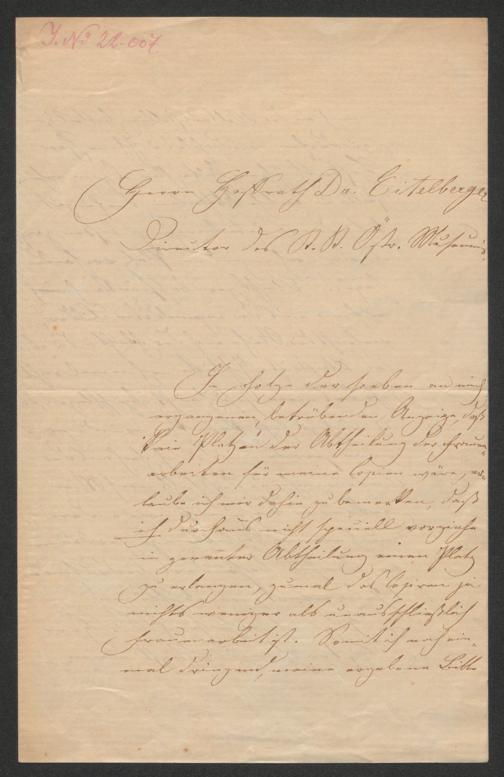 J. No 22-007.
Herrn Hofrath Dr. Eitelberger
Director des K. K. Östr. Museums.
In Folge der soeben an mich
ergangenen, betrübenden Anzeige, daß
kein Platz in der Abtheilung der Frauen-
arbeiten für meine Copien wäre, er-
laube ich mir dahin zu bemerken, daß
ich durchaus nicht speciell vorziehe
in genannter Abtheilung einen Platz
zu erlangen, zumal das Copiren ja
nichts weniger als unausschließlich
Frauenarbeit ist. Somit ich noch ein-
mal dringend, meine ergebene Bitte